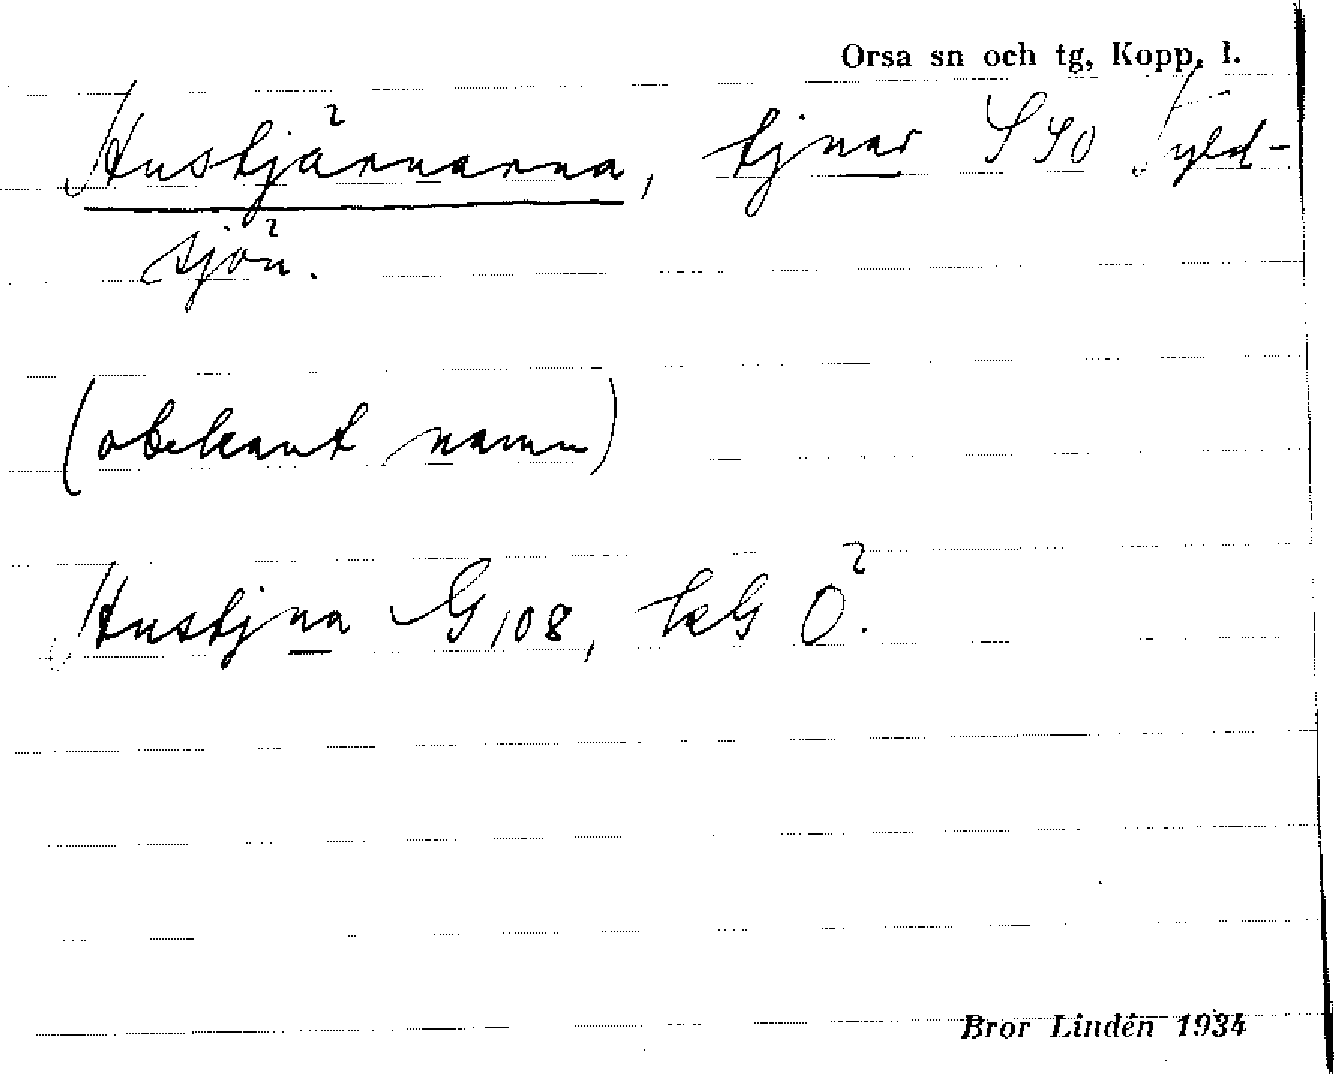 Orsa sn och tg, Kopp. l.
Hustjärnarna, tjnar SSO Fyld-
sjön.
(obekant namn)
Hustjna G 108, O.
Bror Lindén 1934